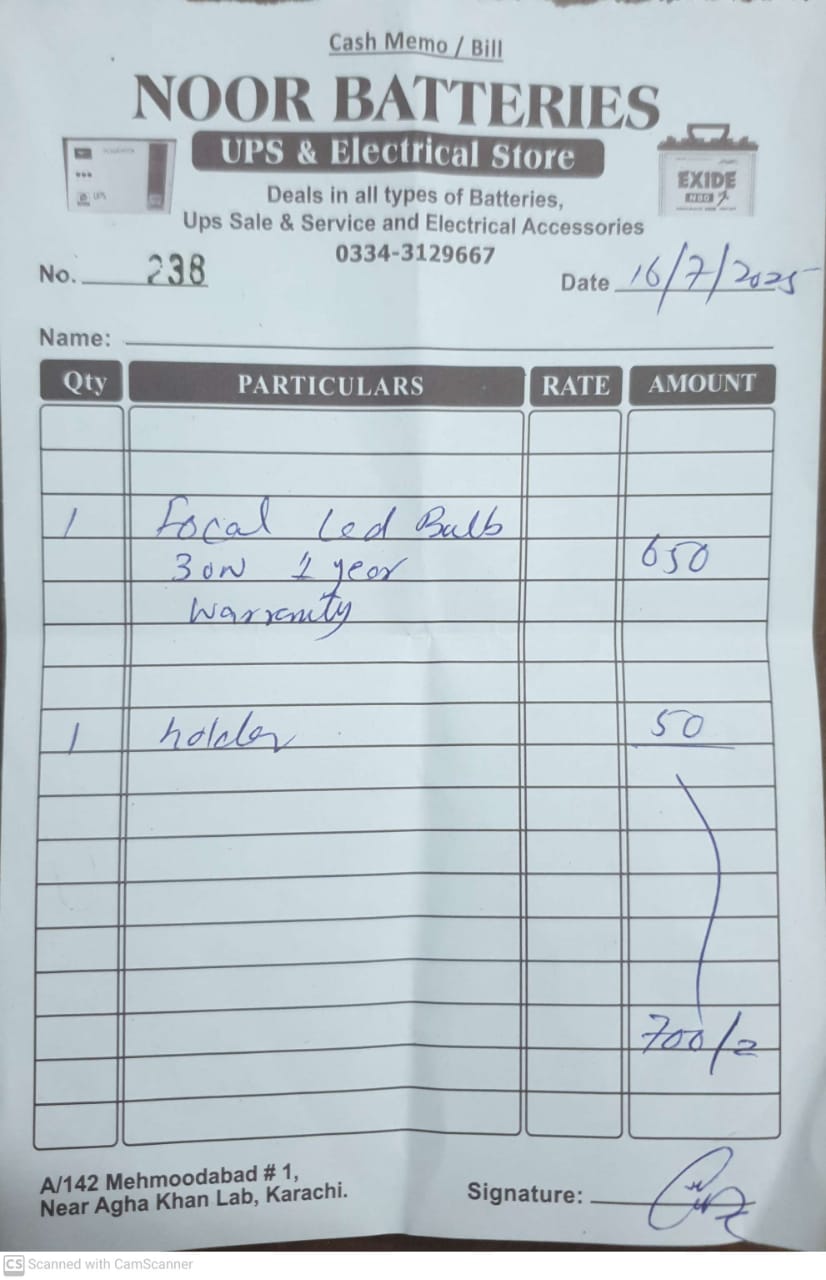 Cash Memo / Bill
NOOR BATTERIES
UPS & Electrical Store
EXIDE
N80
UPS
Deals in all types of Batteries,
Ups Sale & Service and Electrical Accessories
0334-3129667
No. 238
Date 16/7/2025
Name:
Qty PARTICULARS RATE AMOUNT
1 Focal Led Bulb
30W 1 year 650
Warranity
1 holder 50
700/=
A/142 Mehmoodabad # 1,
Near Agha Khan Lab, Karachi.
Signature:
CS Scanned with CamScanner